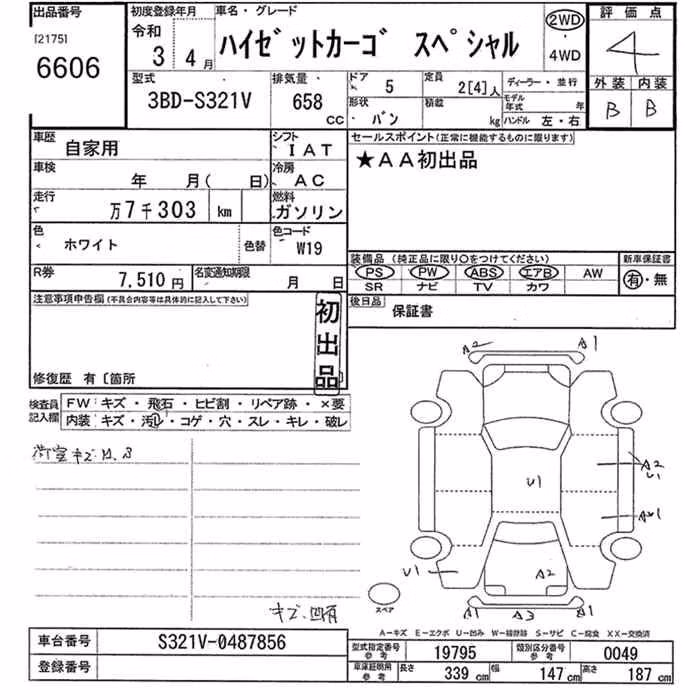 出品番号
[2175]
6606
初度登録年月
令和 3 4月
車名・グレード
ハイゼットカーゴ スペシャル
2WD
・
4WD
評価点
4
外装 内装
B B
型式
3BD-S321V
排気量
658
cc
ドア
5
定員
2[4]人
ディーラー・並行
形状
バン
積載
kg
モデル年式 年
ハンドル 左・右
車歴
自家用
シフト
IAT
車検
年 月( 日)
冷房
AC
走行
万7千303 km
燃料
ガソリン
色
ホワイト
色替
色コード
W19
R券
7,510円
名変通知期限
月 日
セールスポイント(正常に機能するものに限ります)
★AA初出品
装備品(純正品に限り○をつけてください)
新車保証書
PS PW ABS エアB AW
SR ナビ TV カワ
有・無
後日品
保証書
注意事項申告欄(不具合内容等は具体的に記入して下さい)
初出品
修復歴 有〔箇所
検査員
記入欄
FW:キズ・飛石・ヒビ割・リペア跡・×要
内装:キズ・汚レ・コゲ・穴・スレ・キレ・破レ
荷室キズ
A2 A1
A2
U1
U1
U1
A2
A1 A3 A1
スペア
キズ、凹有
A-キズ E-エクボ U-凹み W-補修跡 S-サビ C-腐食 XX-交換済
車台番号
S321V-0487856
登録番号
型式指定番号
参考
19795
類別区分番号
参考
0049
車庫証明用
参考
長さ
339 cm
幅
147 cm
高さ
187 cm